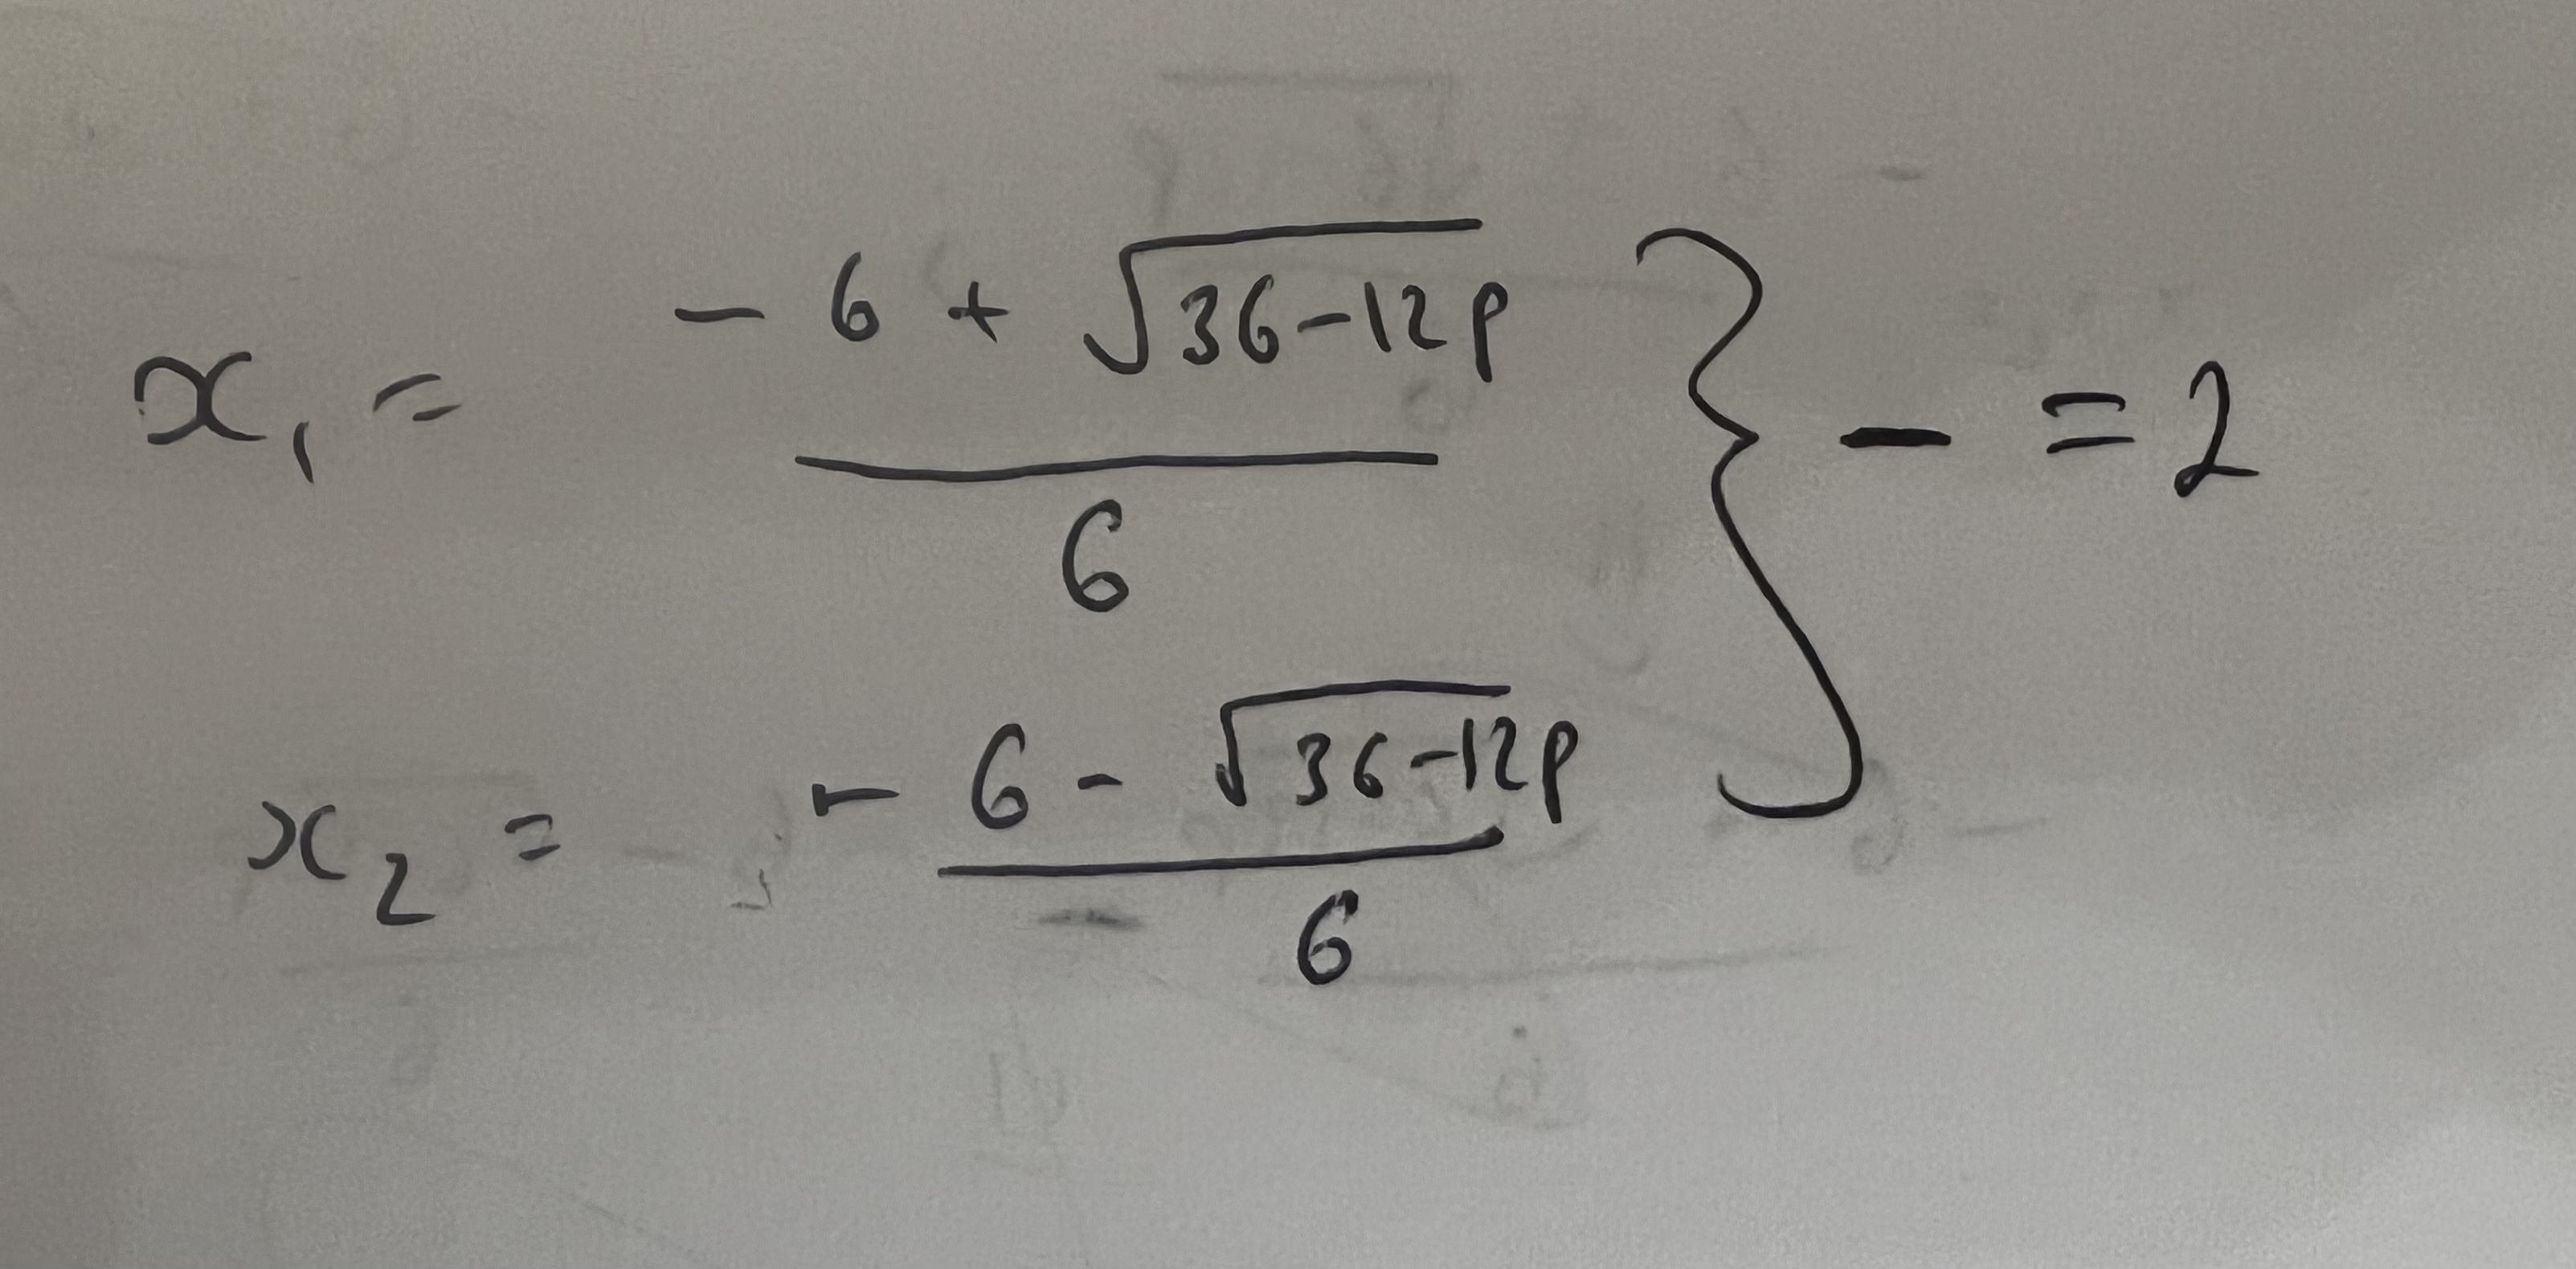 x₁ = (-6 + √(36-12p))/6 } - = 2
x₂ = (-6 - √(36-12p))/6